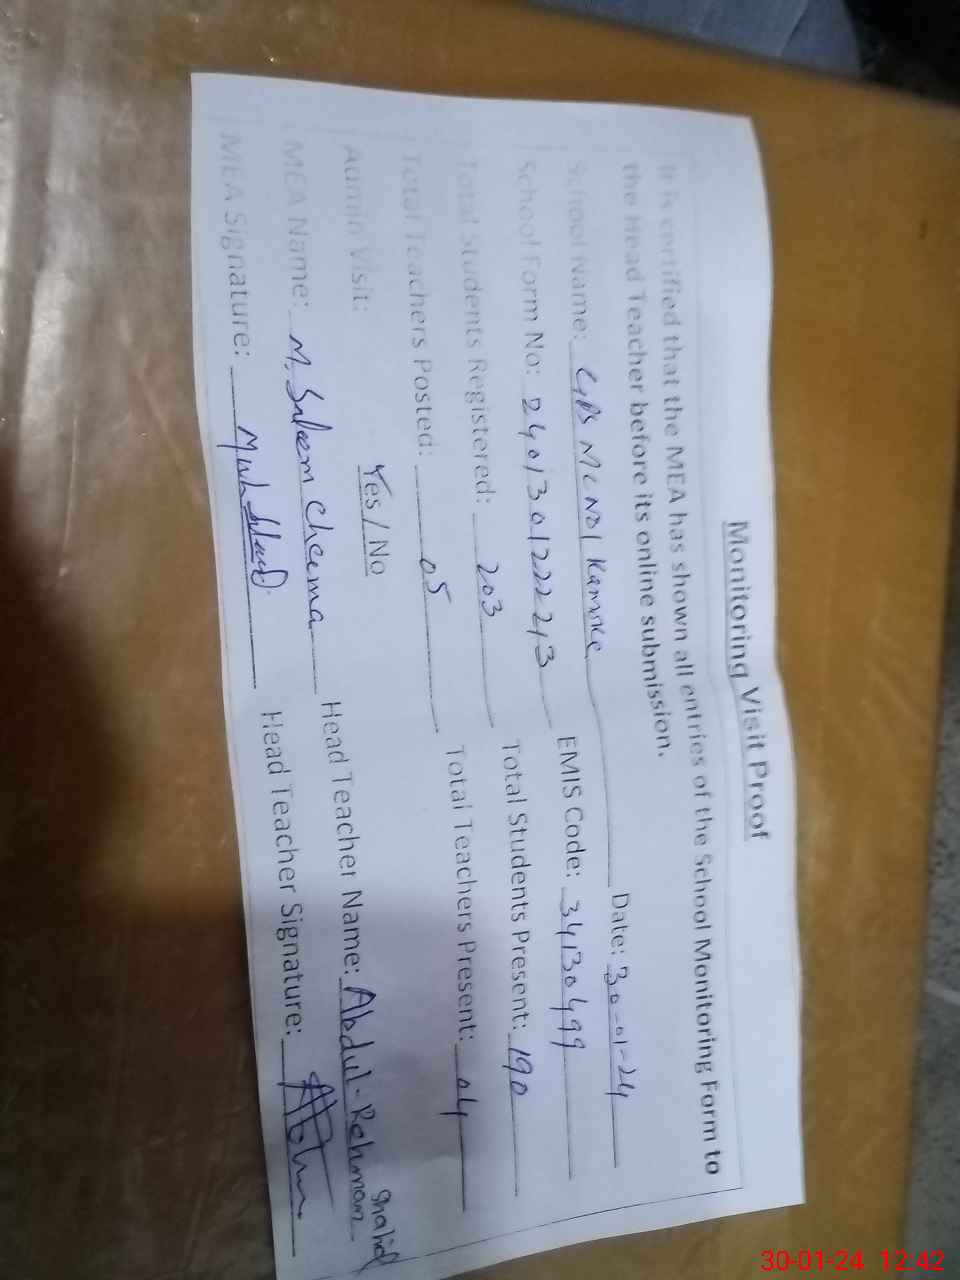 Monitoring Visit Proof
It is certified that the MEA has shown all entries of the School Monitoring Form to
the Head Teacher before its online submission.
School Name: GPS MC NO1 Kamoke Date: 30-01-24
School Form No: 2401301222213 EMIS Code: 34130499
Total Students Registered: 203 Total Students Present: 190
Total Teachers Posted: 05 Total Teachers Present: 04
Admin Visit: Yes / No
MEA Name: M. Saleem Cheema Head Teacher Name: Abdul-Rehman Shahid
MEA Signature: Head Teacher Signature:
30-01-24 12:42